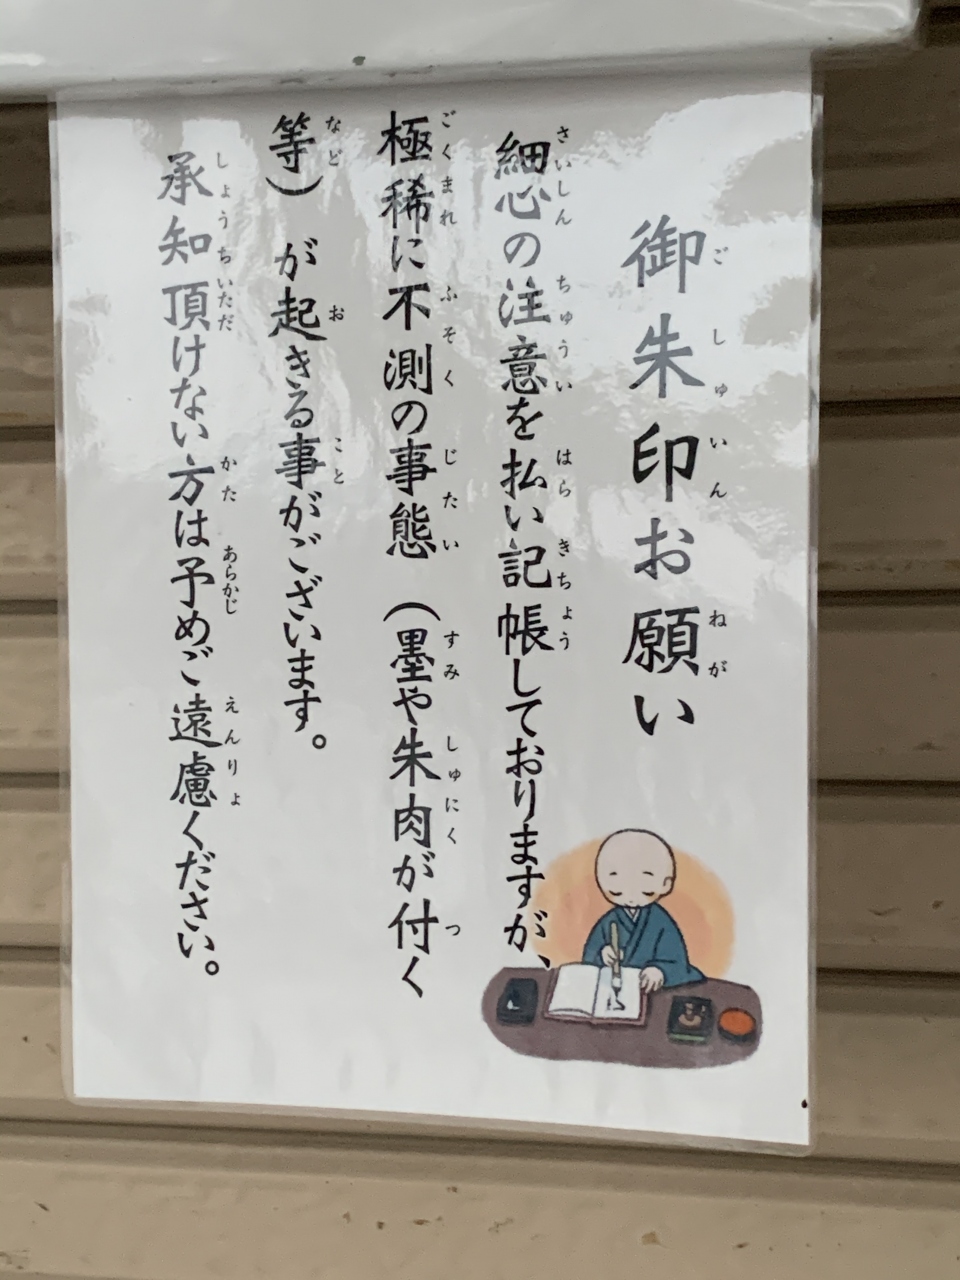 御朱印お願い
細心の注意を払い記帳しておりますが、
極稀に不測の事態（墨や朱肉が付く
等）が起きる事がございます。
承知頂けない方は予めご遠慮ください。